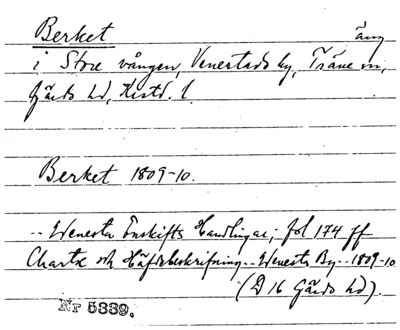 Berket äng
i Store vången, Venestads by, Träne sn,
Gärds hd, Kristd. l.
Berket 1809-10.
-- Wenesta Enskifts Handlingar; fol 174 ff
Charta och Häfdebeskrifning -- Wenesta By -- 1809-10
(D 16 Gärds hd).
Nr 5339.